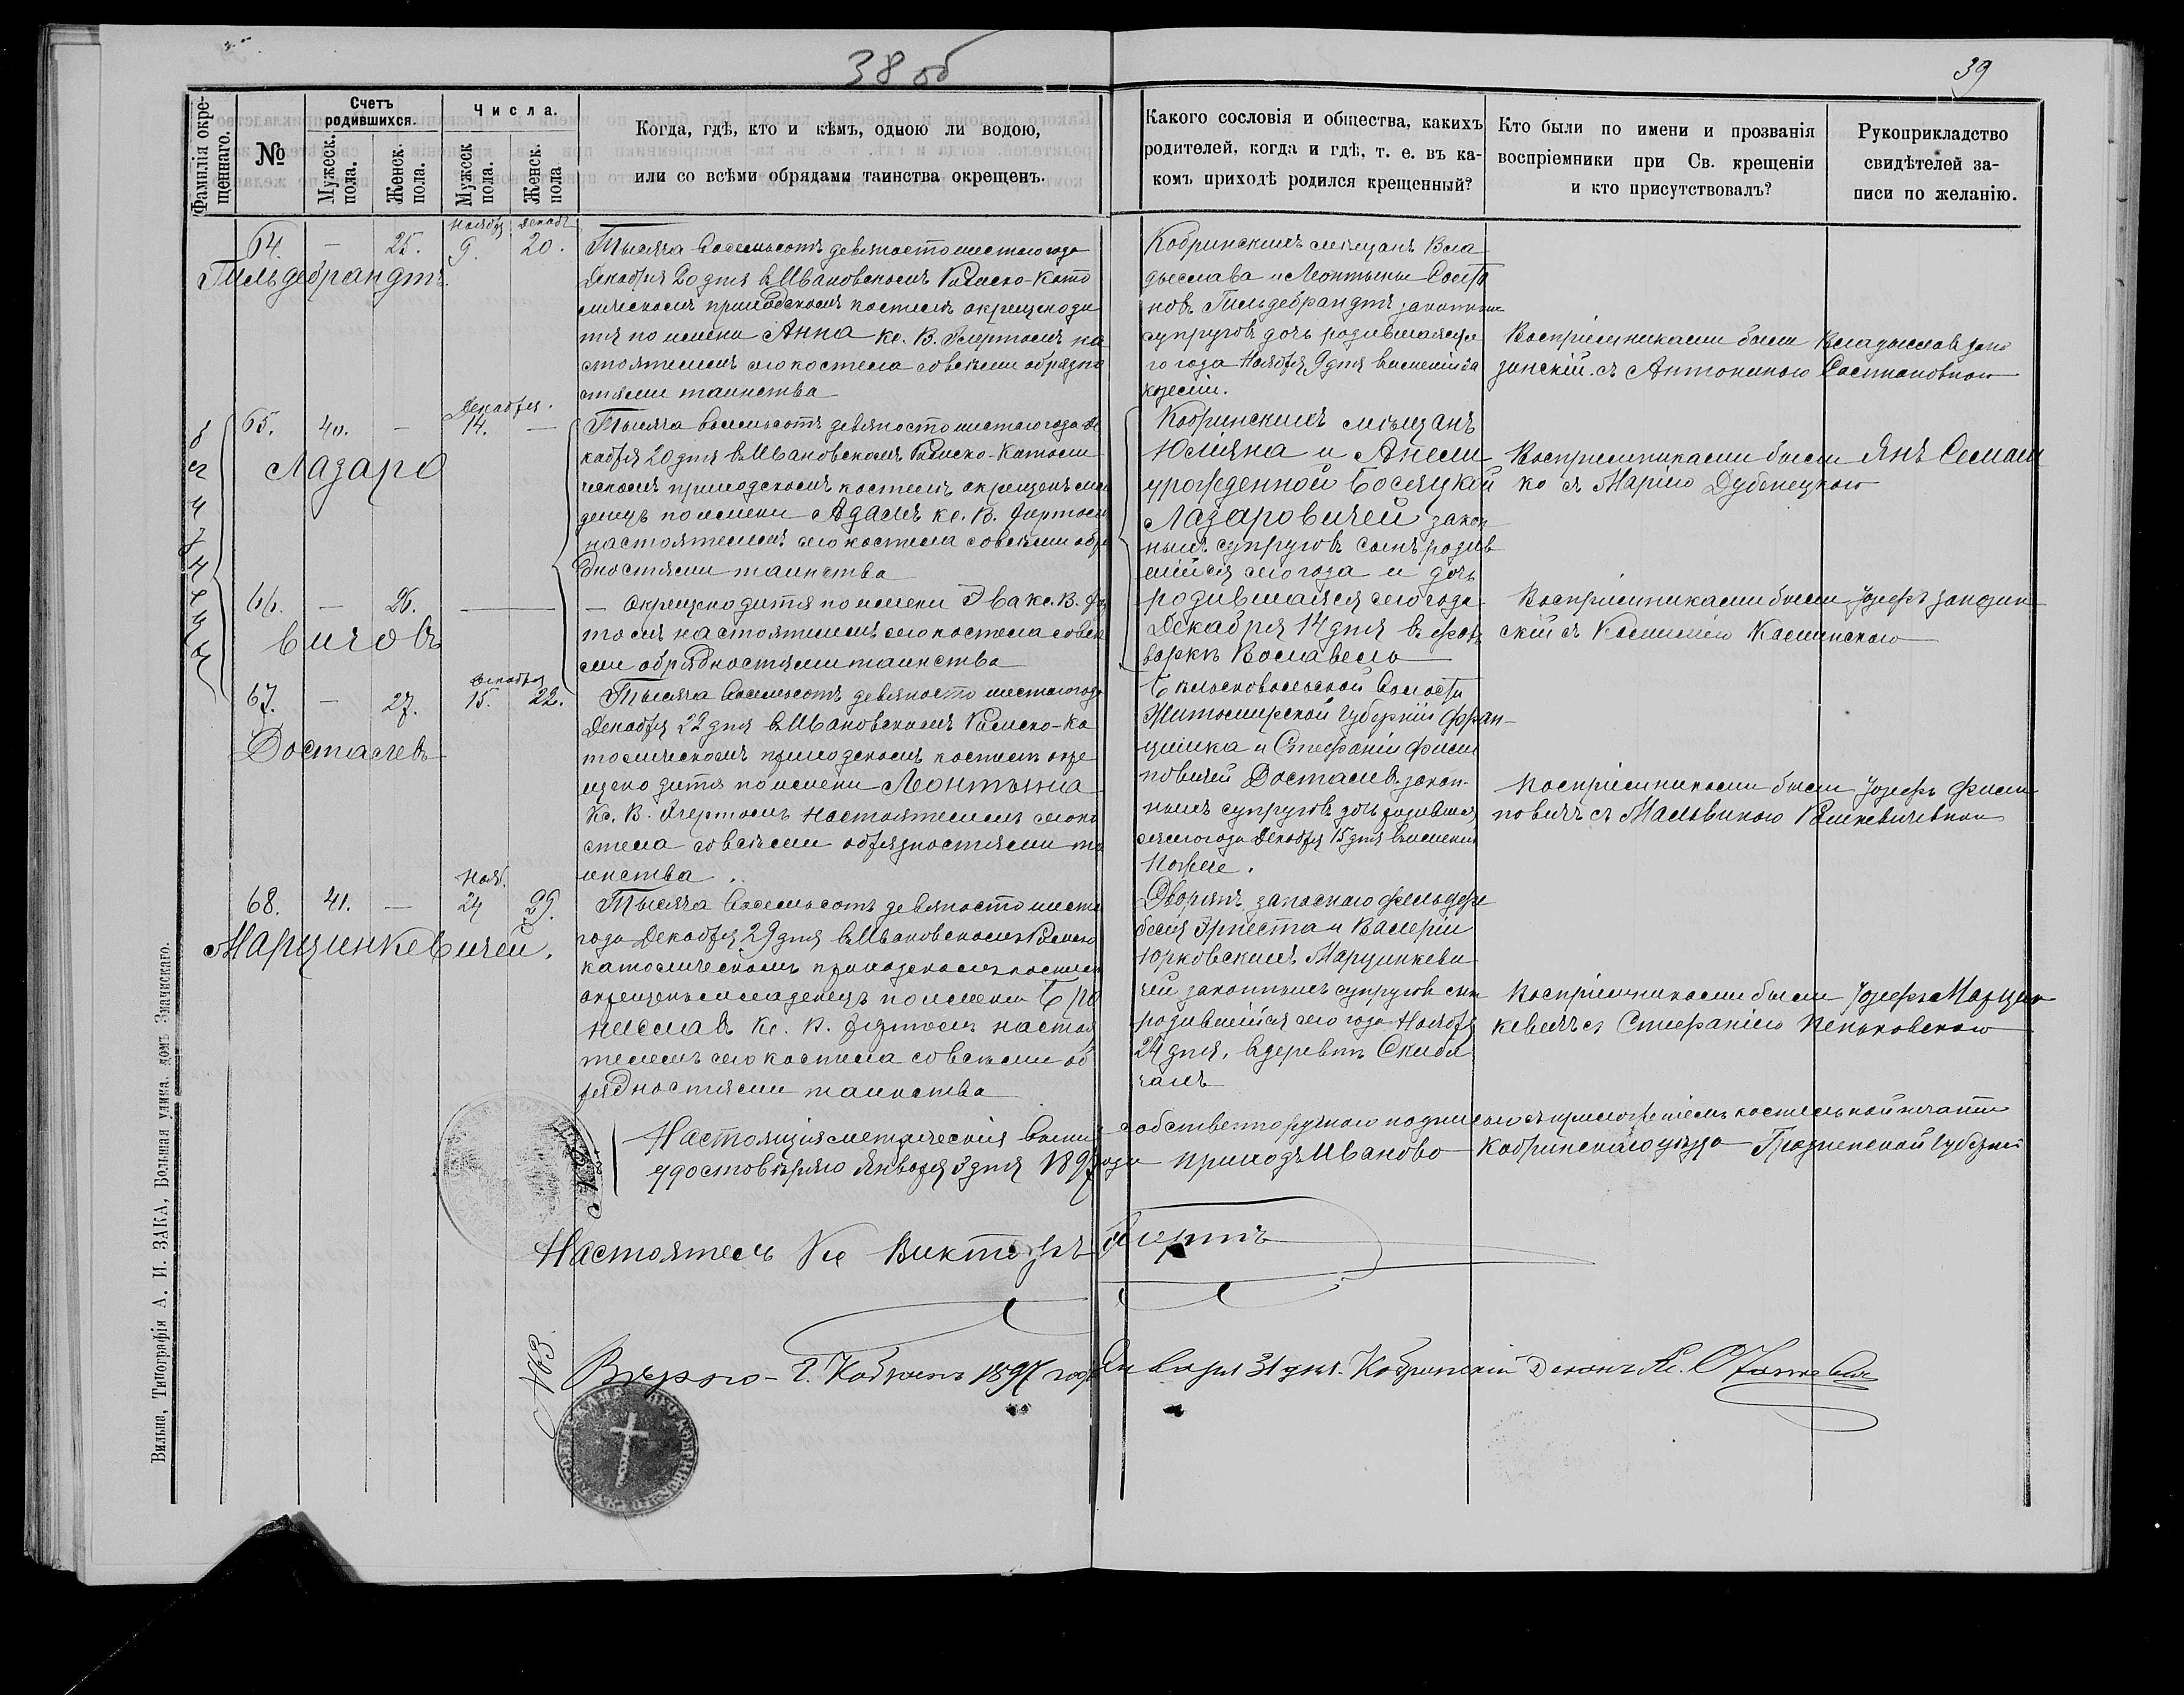 38 об
39
Фамилія окрещеннаго.
№
Счетъ родившихся.
Мужеск. пола.
Женск. пола.
Числа.
Мужеск пола.
Женск. пола
Когда, гдѣ, кто и кѣмъ, одною ли водою,
или со всѣми обрядами таинства окрещенъ.
Какого сословія и общества, какихъ
родителей, когда и гдѣ, т. е. въ ка-
комъ приходѣ родился крещенный?
Кто были по имени и прозванія
воспріемники при Св. крещеніи
и кто присутствовалъ?
Рукоприкладство
свидѣтелей за-
писи по желанію.
64. — 25. Ноября 9. Декаб. 20.
Гильдебрандтъ.
Тысяча восемьсотъ девяносто шестого года
Декабря 20 дня въ Ивановскомъ Римско-Като
лическомъ приходскомъ костелѣ окрещено ди
тя по имени Анна кс. В.
стоятелемъ сего костела со всѣми обрядно
стями таинства
Кобринскихъ мѣщанъ Вла
дыслава и Леонтыны
новъ Гильдебрандтъ законныхъ
супруговъ дочь родившаяся се
го года Ноября 9 дня въ имѣніи
Воспріемниками были Владыславъ
с Антониною
65. 40. — Декабря. 14. —
Лазаро
Тысяча восемьсотъ девяносто шестого года Де
кабря 20 дня въ Ивановскомъ Римско-Католи
ческомъ приходскомъ костелѣ окрещенъ мла
денецъ по имени Адамъ кс. В.
настоятелемъ сего костела со всѣми обря
дностями таинства
Кобринскихъ мѣщанъ
Юліяна и Анели
урожденной Босяцкой
Лазаровичей закон
ныхъ супруговъ сынъ родив
шійся сего года и дочь
родившаяся сего года
Декабря 14 дня въ фоль
варкѣ
Воспріемниками были Янъ Семаш
ко съ Маріею Дубенецкою
близнецовъ
66. — 26. —
вичовъ
— окрещено дитя по имени Эва кс. В.
настоятелемъ сего костела со всѣ
ми обрядностями таинства
Воспріемниками были Іозефъ
скій съ Каминскою
67. — 27. Декабря 15. 22.
Досталевъ
Тысяча восемьсотъ девяносто шестого года
Декабря 22 дня въ Ивановскомъ Римско-Ка
толическомъ приходскомъ костелѣ окре
щено дитя по имени Леонтына
Кс. В. настоятелемъ сего ко
стела со всѣми обрядностями та
инства
волости
Житомирской губерніи Фран-
цишка и Стефаніи Фили
повичей Досталевъ закон-
ныхъ супруговъ дочь родивша
яся сего года Декабря 15 дня въ имѣніи
Порѣче.
Воспріемниками были Іозефъ Фили
повичъ съ Мальвиною
68. 41. — Нояб. 24 29.
Марцинкевичей.
Тысяча восемьсотъ девяносто шестого
года Декабря 29 дня въ Ивановскомъ Римско
католическомъ приходскомъ костелѣ
окрещенъ младенецъ по имени Бро
ниславъ Кс. В. настоя
телемъ сего костела со всѣми об
рядностями таинства
Дворянъ запаснаго фельдфе
беля Эрнеста и Валеріи
Юрковскихъ Марцинкеви
чей законныхъ супруговъ сынъ
родившійся сего года Ноября
24 дня, въ деревнѣ Скиби
чахъ
Воспріемниками были Іозефъ Марцин
кевичъ съ Стефаніею Пеньковскою
М.П.
Настоящія метрическія собственноручною подписью съ приложеніемъ костельной печати
удостовѣряю Января 3 дня 1897 года приходъ Иваново Кобринскаго уѣзда Гродненской губерніи
Настоятель Кс Викторъ
М.П.
Вѣрно - г. Кобринъ 1897 года Января 31 дня. Кобринскій Деканъ Кс.
Вильна, Типографія А. И. ЗАКА, Большая улица, домъ Значкскаго.